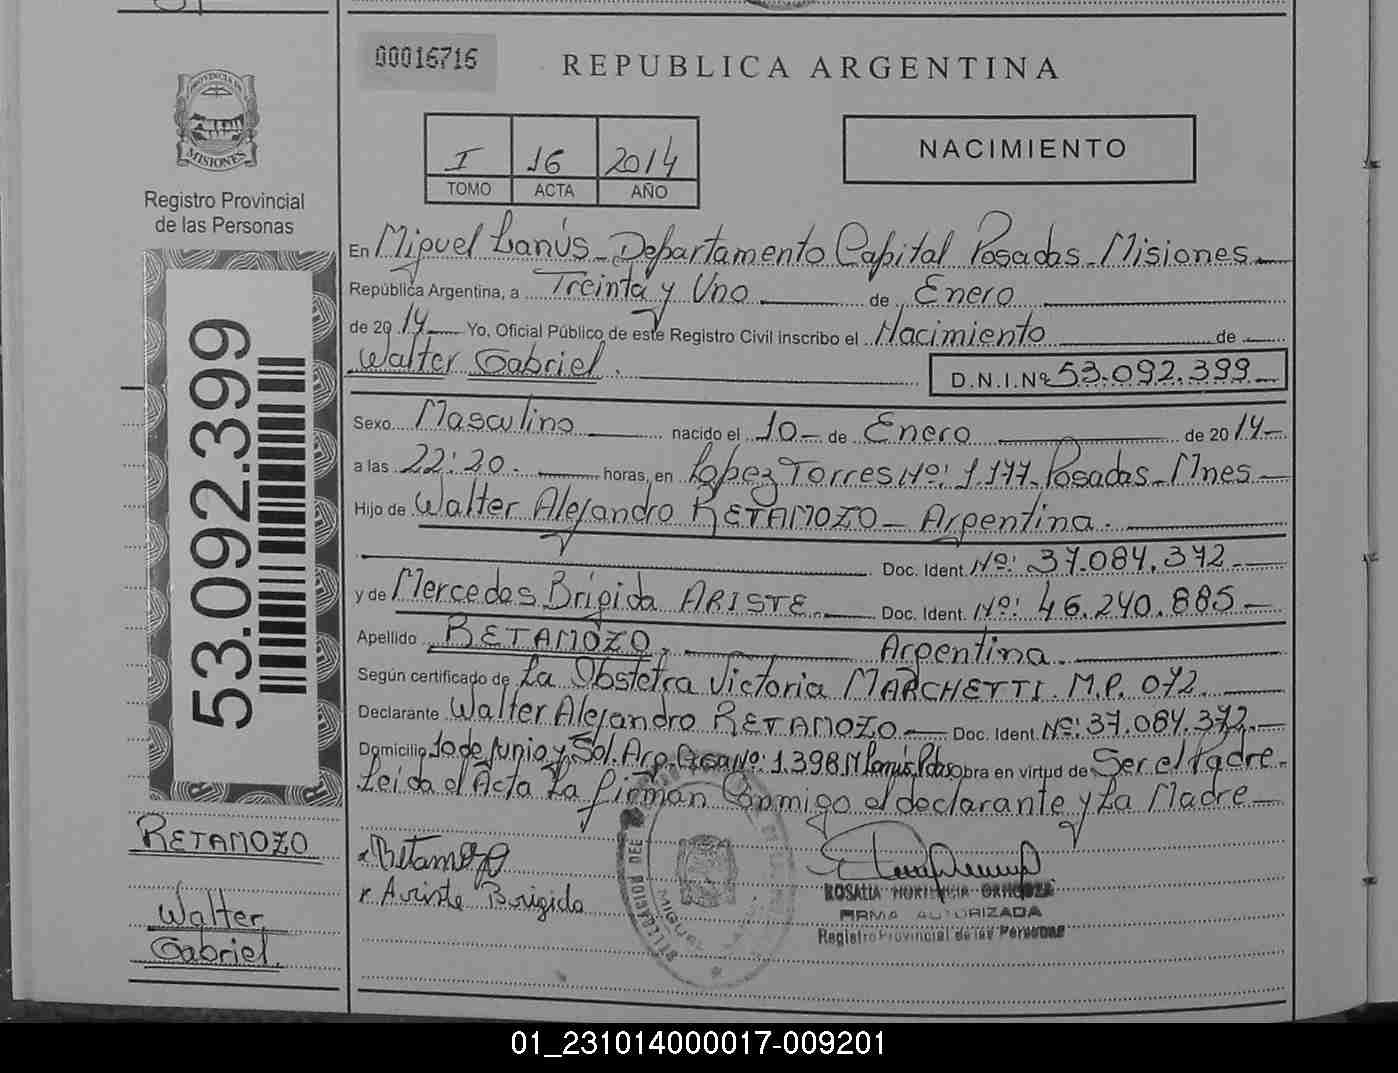 00016716
REPUBLICA ARGENTINA
PROVINCIA DE
MISIONES
Registro Provincial
de las Personas
I 16 2014
TOMO ACTA AÑO
NACIMIENTO
53.092.399
En Miguel Lanús - Departamento Capital Posadas - Misiones
República Argentina, a Treinta y Uno de Enero
de 2014 Yo, Oficial Público de este Registro Civil inscribo el Nacimiento de
Walter Gabriel.
D.N.I.Nº 53.092.399
Sexo Masculino nacido el 10 de Enero de 2014
a las 22:20. horas, en Lopez Torres Nº: 1.177. Posadas - Mnes
Hijo de Walter Alejandro RETAMOZO - Argentina.
Doc. Ident. Nº: 37.084.372
y de Mercedes Brígida ARISTE. Doc. Ident. Nº: 46.240.885
Apellido RETAMOZO. Argentina.
Según certificado de La Obstetra Victoria MARCHETTI. M.P. 072.
Declarante Walter Alejandro RETAMOZO Doc. Ident. Nº: 37.084.372.
Domicilio 10 de Junio y Sol. Arg. Casa Nº: 1.398 M Lanús. Pdas obra en virtud de Ser el Padre.
Leida el Acta La firman Conmigo el declarante y La Madre
RETAMOZO
Walter
Gabriel.
Retamozo
Ariste Brigida
DELEGACION DEL
MIGUEL
ROSALIA
FIRMA AUTORIZADA
Registro Provincial de las Personas
01_231014000017-009201